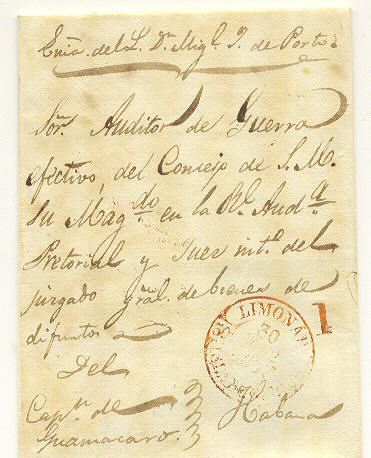 Ermã. del S. Dn. Migl. Jo. de Porto.
Sor. Auditor de Guerra
efectivo, del Consejo de S. M.
su Magdo. en la Rl. Auda.
Pretorial y Juez int. del
juzgado gral. de bienes de
difuntos
LIMONAR
30
1
Del
Capn. de Habana
Guamacaro.